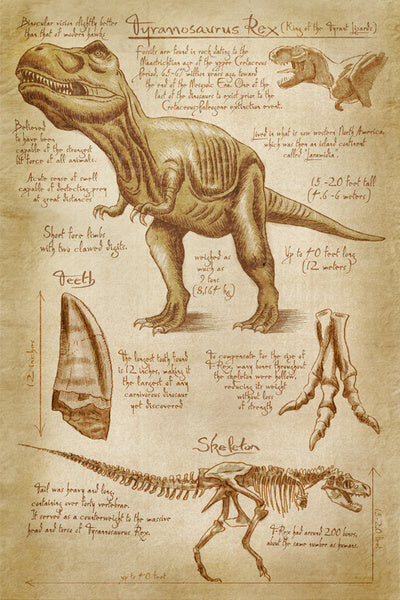 Binocular vision slightly better
than that of modern hawks.
Tyranosaurus Rex (King of the Tyrant Lizards)
Fossils are found in rock dating to the
Maastrichtian age of the upper Cretaceous
Period, 65-67 million years ago, toward
the end of the Mesozoic Era. One of the
last of the dinosaurs to exist prior to the
Cretaceous-Paleogene extinction event.
Believed
to have been
capable of the strongest
bite force of all animals.
Lived in what is now western North America,
which was then an island continent
called Laramidia.
Acute sense of smell
capable of detecting prey
at great distances
15-20 feet tall
(4.6-6 meters)
Short fore limbs
with two clawed digits.
weighed as
much as
9 tons
(8,164 kg)
Up to 40 feet long
(12 meters)
Teeth
12 inches
The longest tooth found
is 12 inches, making it
the largest of any
carnivorous dinosaur
yet discovered
To compensate for the size of
T-Rex, many bones throughout
the skeleton were hollow,
reducing its weight
without loss
of strength
Skeleton
Tail was heavy and long
containing over forty vertebrae.
It served as a counterweight to the massive
head and torso of Tyranosaurus Rex.
T-Rex had around 200 bones,
about the same number as humans.
15-20 feet
up to 40 feet